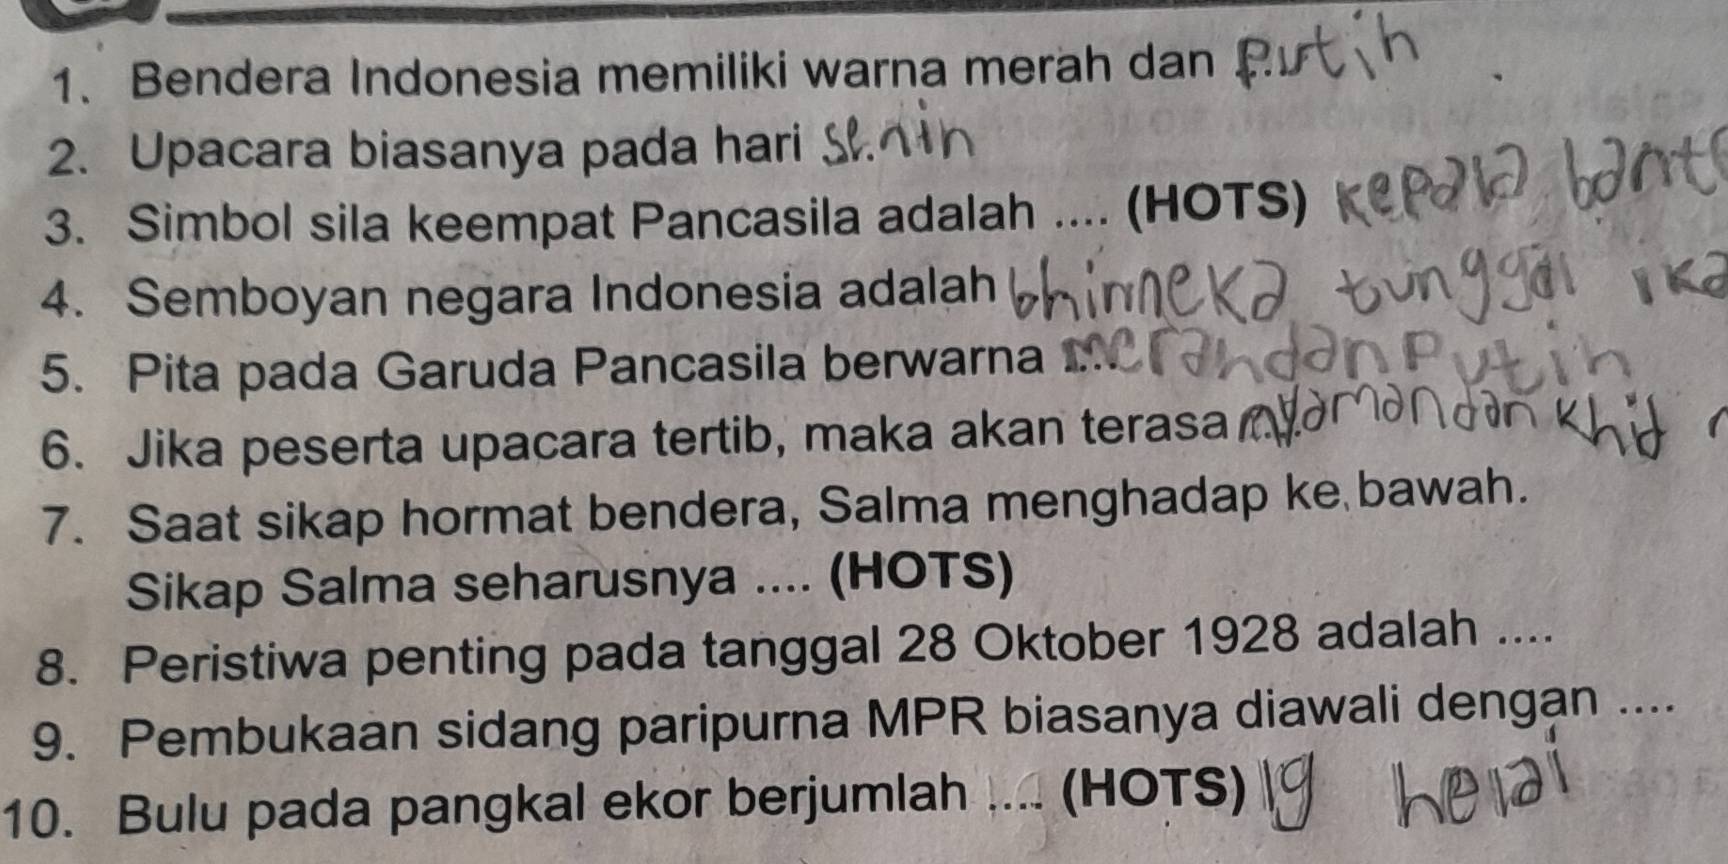 1. Bendera Indonesia memiliki warna merah dan putih
2. Upacara biasanya pada hari senin
3. Simbol sila keempat Pancasila adalah .... (HOTS) kepala bante
4. Semboyan negara Indonesia adalah bhinneka tunggal ika
5. Pita pada Garuda Pancasila berwarna merahdan Putih
6. Jika peserta upacara tertib, maka akan terasa nyamandan
7. Saat sikap hormat bendera, Salma menghadap ke bawah.
Sikap Salma seharusnya .... (HOTS)
8. Peristiwa penting pada tanggal 28 Oktober 1928 adalah ....
9. Pembukaan sidang paripurna MPR biasanya diawali dengan ....
10. Bulu pada pangkal ekor berjumlah .... (HOTS) 19 helai